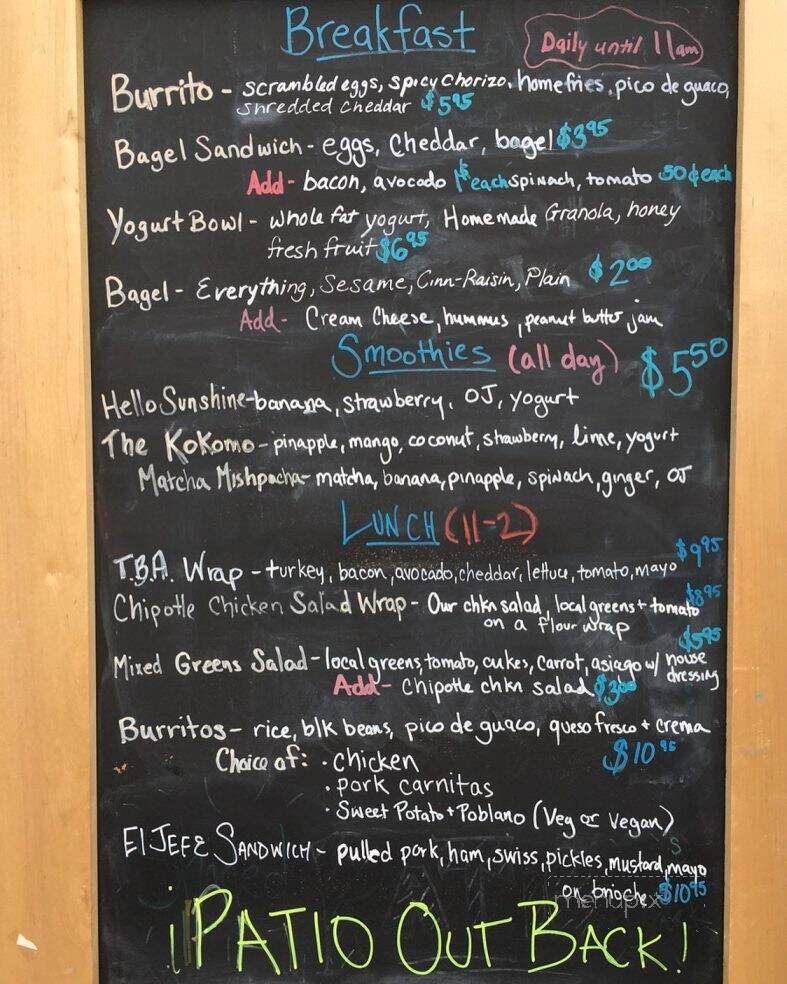 Breakfast Daily until 11am
Burrito - scrambled eggs, spicy chorizo, homefries, pico de guaco,
shredded cheddar $5.95
Bagel Sandwich - eggs, Cheddar, bagel $3.95
Add - bacon, avocado $1 each spinach, tomato 50¢ each
Yogurt Bowl - whole fat yogurt, Homemade Granola, honey
fresh fruit $6.95
Bagel - Everything, Sesame, Cinn-Raisin, Plain $2.00
Add - Cream Cheese, hummus, peanut butter jam
Smoothies (all day) $5.50
Hello Sunshine - banana, strawberry, OJ, yogurt
The Kokomo - pinapple, mango, coconut, strawberry, lime, yogurt
Matcha Mishpacha - matcha, banana, pinapple, spinach, ginger, OJ
Lunch (11-2)
T.B.A. Wrap - turkey, bacon, avocado, cheddar, lettuce, tomato, mayo $9.95
Chipotle Chicken Salad Wrap - Our chkn salad, local greens + tomato $8.95
on a flour wrap
Mixed Greens Salad - local greens, tomato, cukes, carrot, asiago w/ house dressing $5.95
Add - Chipotle chkn salad $3.00
Burritos - rice, blk beans, pico de guaco, queso fresco + crema
Choice of: • chicken $10.95
• pork carnitas
• Sweet Potato + Poblano (Veg or Vegan)
El Jefe Sandwich - pulled pork, ham, swiss, pickles, mustard, mayo
on brioche $10.95
menupix
¡PATIO OUT BACK!